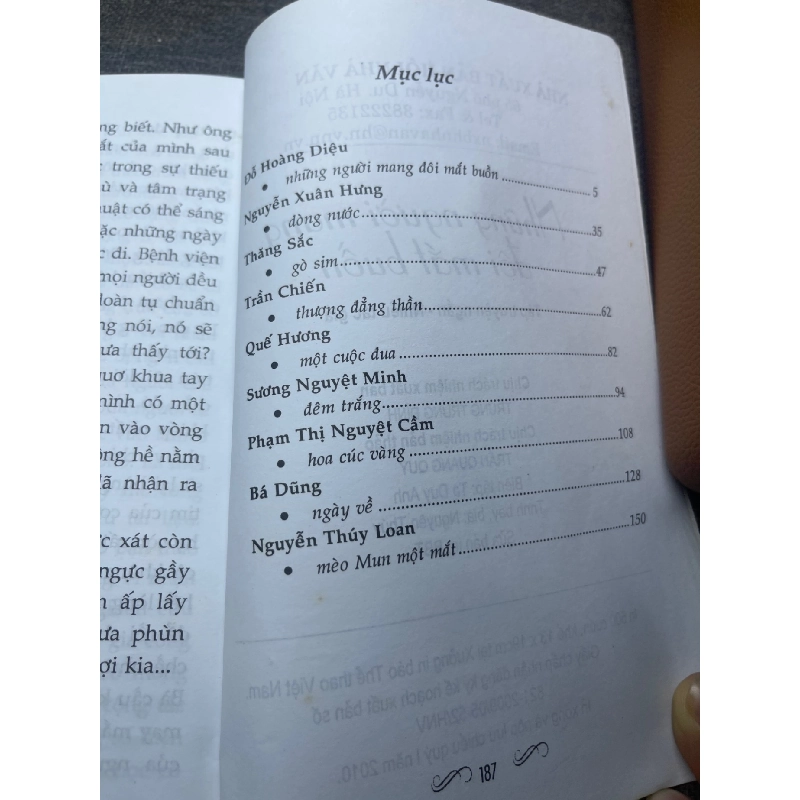 ng biết. Như ông
ất của mình sau
trong sự thiếu
ù và tâm trạng
uật có thể sáng
ặc những ngày
c di. Bệnh viện
mọi người đều
loàn tụ chuẩn
ng nói, nó sẽ
ưa thấy tới?
quơ khua tay
mình có một
n vào vòng
ông hề nằm
lã nhận ra
ực xát còn
ngực gầy
n ấp lấy
ưa phùn
ợi kia...
Mục lục
Đỗ Hoàng Diệu
• những người mang đôi mắt buồn 5
Nguyễn Xuân Hưng
• dòng nước 35
Thăng Sắc
• gò sim 47
Trần Chiến
• thượng đẳng thần 62
Quế Hương
• một cuộc đua 82
Sương Nguyệt Minh
• đêm trắng 94
Phạm Thị Nguyệt Cầm
• hoa cúc vàng 108
Bá Dũng
• ngày về 128
Nguyễn Thúy Loan
• mèo Mun một mắt 150
187